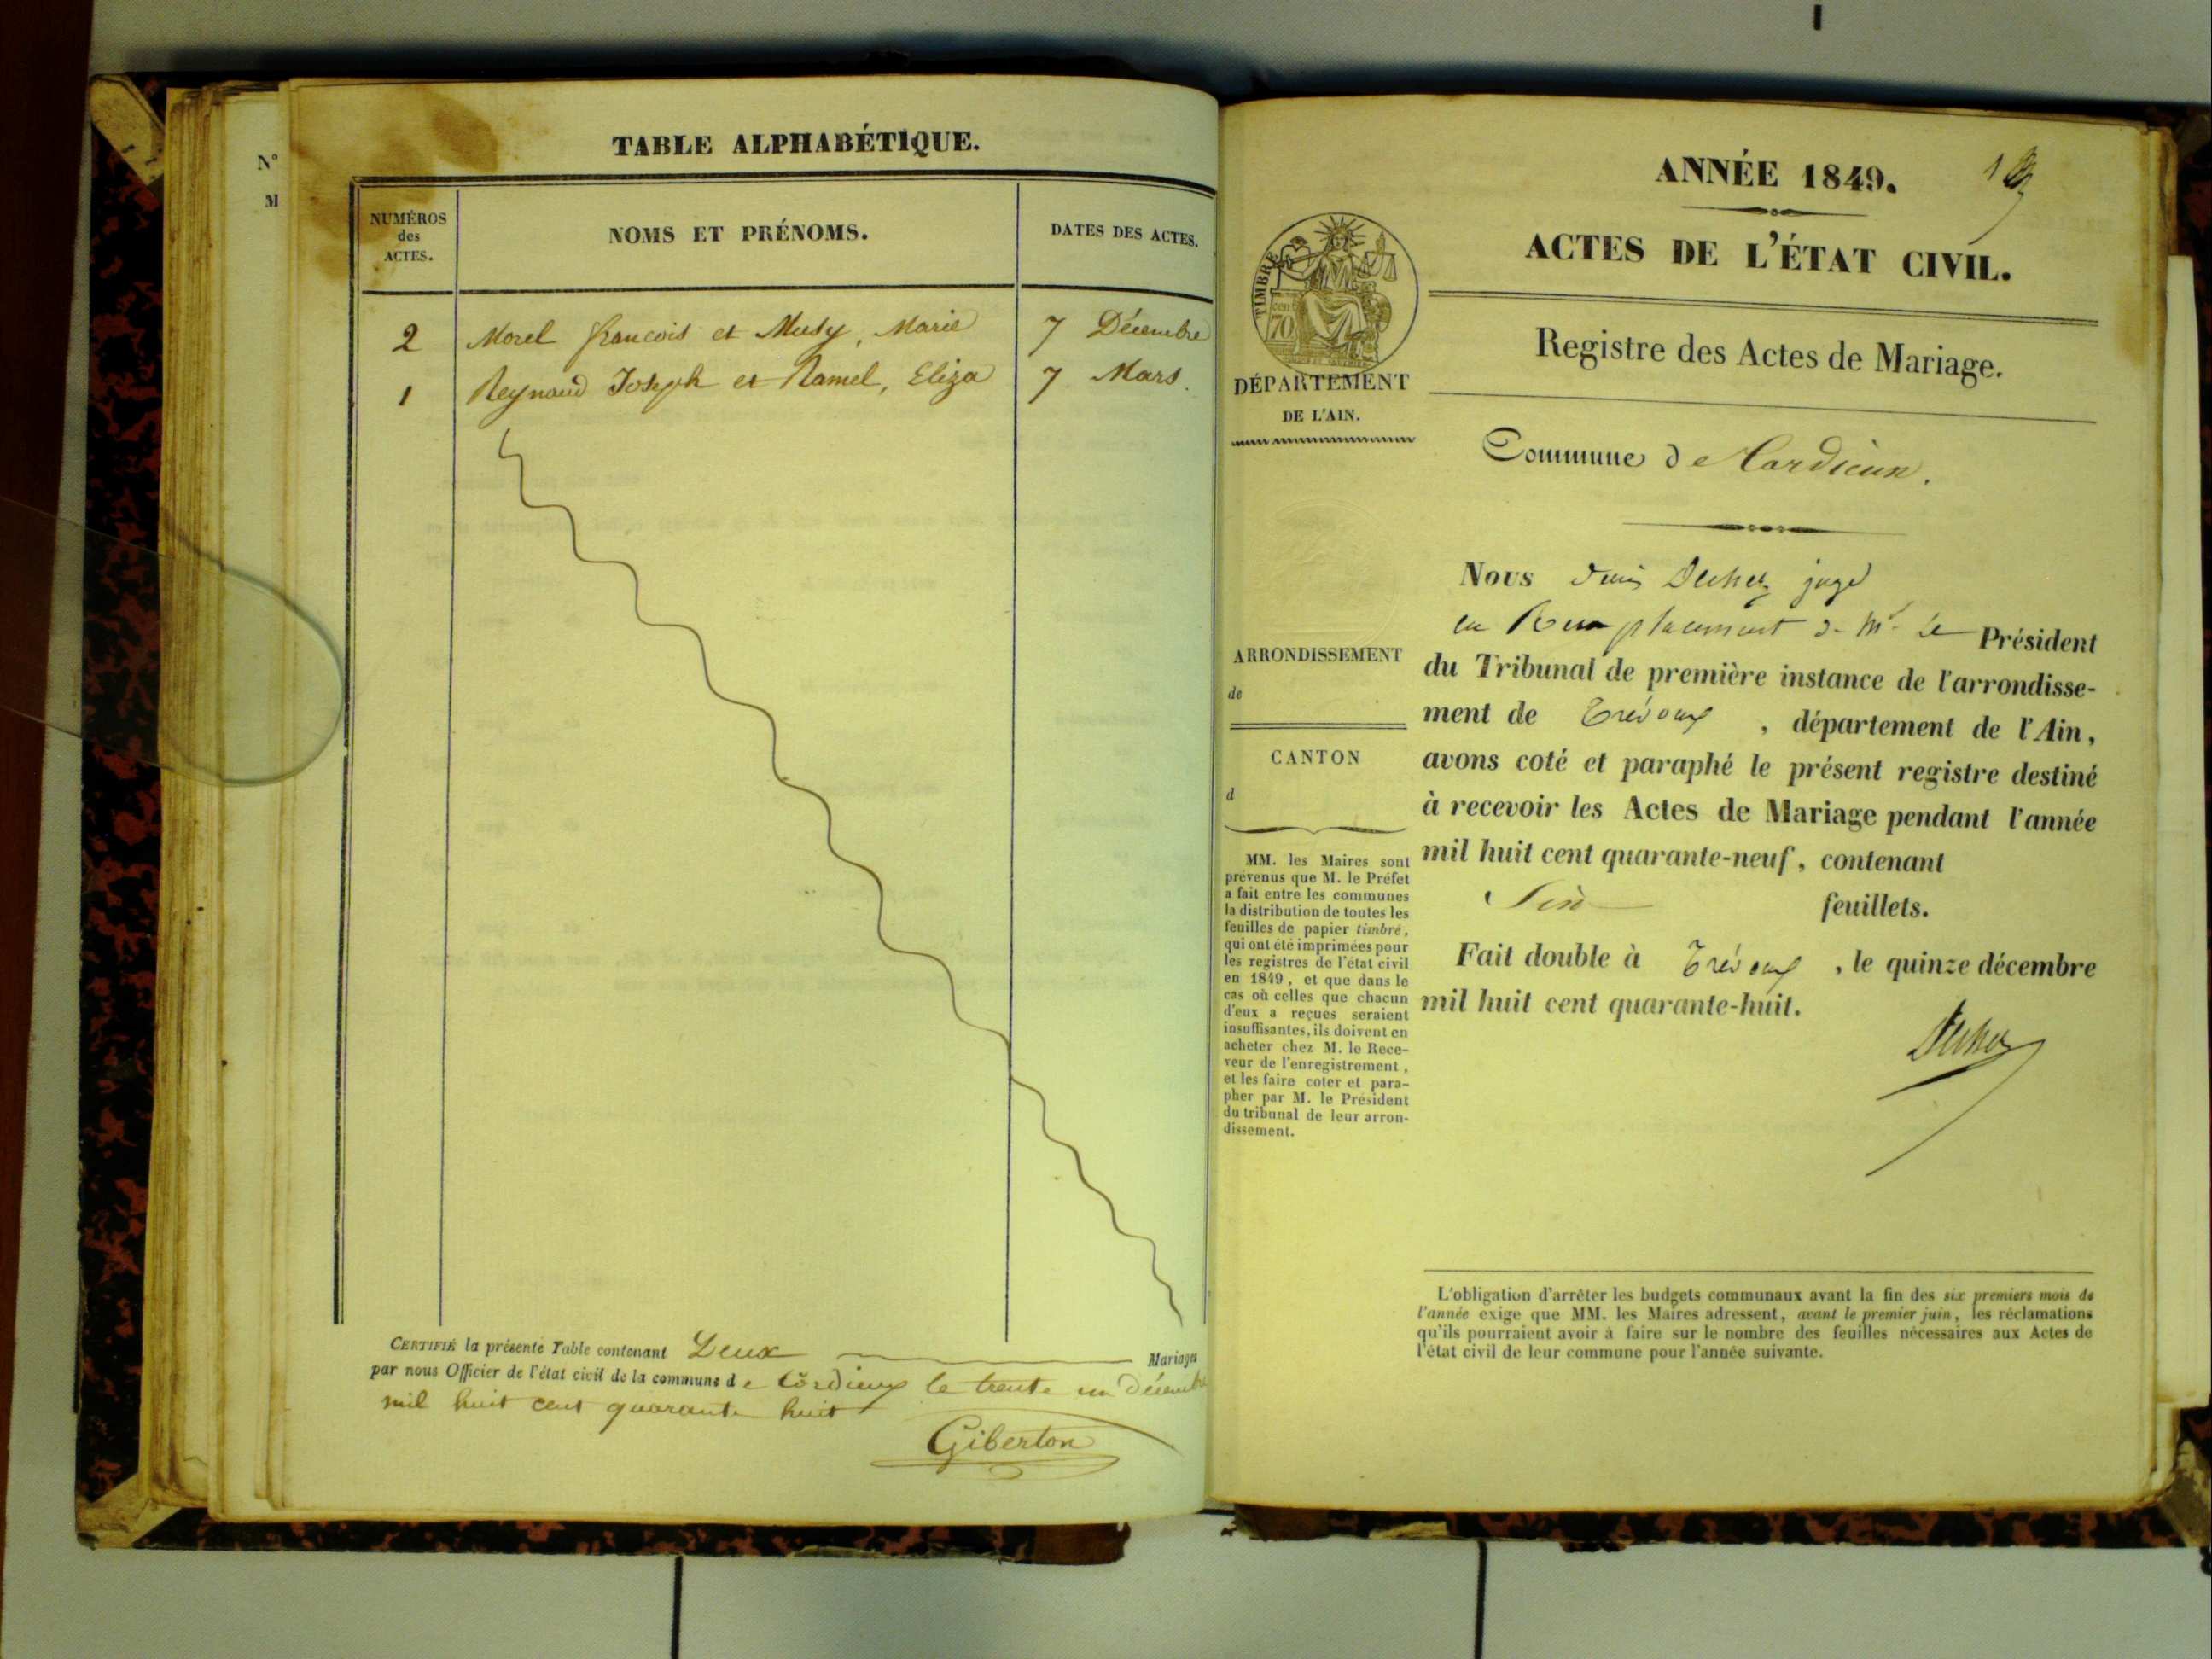 N°
M
TABLE ALPHABÉTIQUE.
NUMÉROS
des
ACTES.
NOMS ET PRÉNOMS.
DATES DES ACTES.
2 Morel francois et Musy, Marie 7 Décembre
1 Reynaud Joseph et Ramel, Eliza 7 Mars.
CERTIFIÉ la présente Table contenant Deux Mariages
par nous Officier de l'état civil de la commune de Cordieux le trente un Décembre
mil huit cent quarante huit
Giberton
ANNÉE 1849.
1
ACTES DE L'ÉTAT CIVIL.
TIMBRE
70
Registre des Actes de Mariage.
DÉPARTEMENT
DE L'AIN.
Commune de Cordieux.
Nous juge
en Remplacement de Mr Le Président
du Tribunal de première instance de l'arrondisse-
ment de Trévoux, département de l'Ain,
avons coté et paraphé le présent registre destiné
à recevoir les Actes de Mariage pendant l'année
mil huit cent quarante-neuf, contenant
Six feuillets.
Fait double à Trévoux, le quinze décembre
mil huit cent quarante-huit.
ARRONDISSEMENT
de
CANTON
d
MM. les Maires sont
prévenus que M. le Préfet
a fait entre les communes
la distribution de toutes les
feuilles de papier timbré,
qui ont été imprimées pour
les registres de l'état civil
en 1849, et que dans le
cas où celles que chacun
d'eux a reçues seraient
insuffisantes, ils doivent en
acheter chez M. le Rece-
veur de l'enregistrement,
et les faire coter et para-
pher par M. le Président
du tribunal de leur arron-
dissement.
L'obligation d'arrêter les budgets communaux avant la fin des six premiers mois de
l'année exige que MM. les Maires adressent, avant le premier juin, les réclamations
qu'ils pourraient avoir à faire sur le nombre des feuilles nécessaires aux Actes de
l'état civil de leur commune pour l'année suivante.